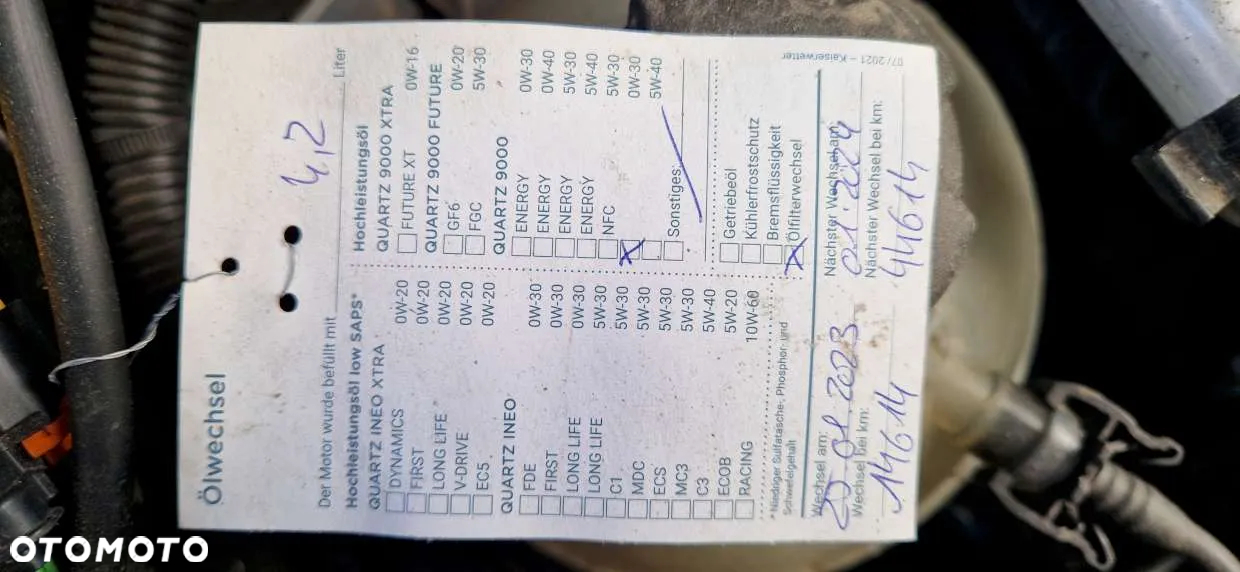 Ölwechsel
Der Motor wurde befüllt mit 4,2 Liter
Hochleistungsöl low SAPS*
QUARTZ INEO XTRA
DYNAMICS 0W-20
FIRST 0W-20
LONG LIFE 0W-20
V-DRIVE 0W-20
EC5 0W-20
QUARTZ INEO
FDE 0W-30
FIRST 0W-30
LONG LIFE 0W-30
LONG LIFE 5W-30
C1 5W-30
MDC 5W-30
ECS 5W-30
MC3 5W-30
C3 5W-40
ECOB 5W-20
RACING 10W-60
*Niedriger Sulfatasche-, Phosphor- und
Schwefelgehalt
Hochleistungsöl
QUARTZ 9000 XTRA
FUTURE XT 0W-16
QUARTZ 9000 FUTURE
GF6 0W-20
FGC 5W-30
QUARTZ 9000
ENERGY 0W-30
ENERGY 0W-40
ENERGY 5W-30
ENERGY 5W-40
NFC 5W-30
X 0W-30
5W-40
Sonstiges:
Getriebeöl
Kühlerfrostschutz
Bremsflüssigkeit
X Ölfilterwechsel
Wechsel am:
25.01.2023
Wechsel bei km:
14614
Nächster Wechsel am:
01.2024
Nächster Wechsel bei km:
44614
07/2021 – Kaiserwetter
OTOMOTO